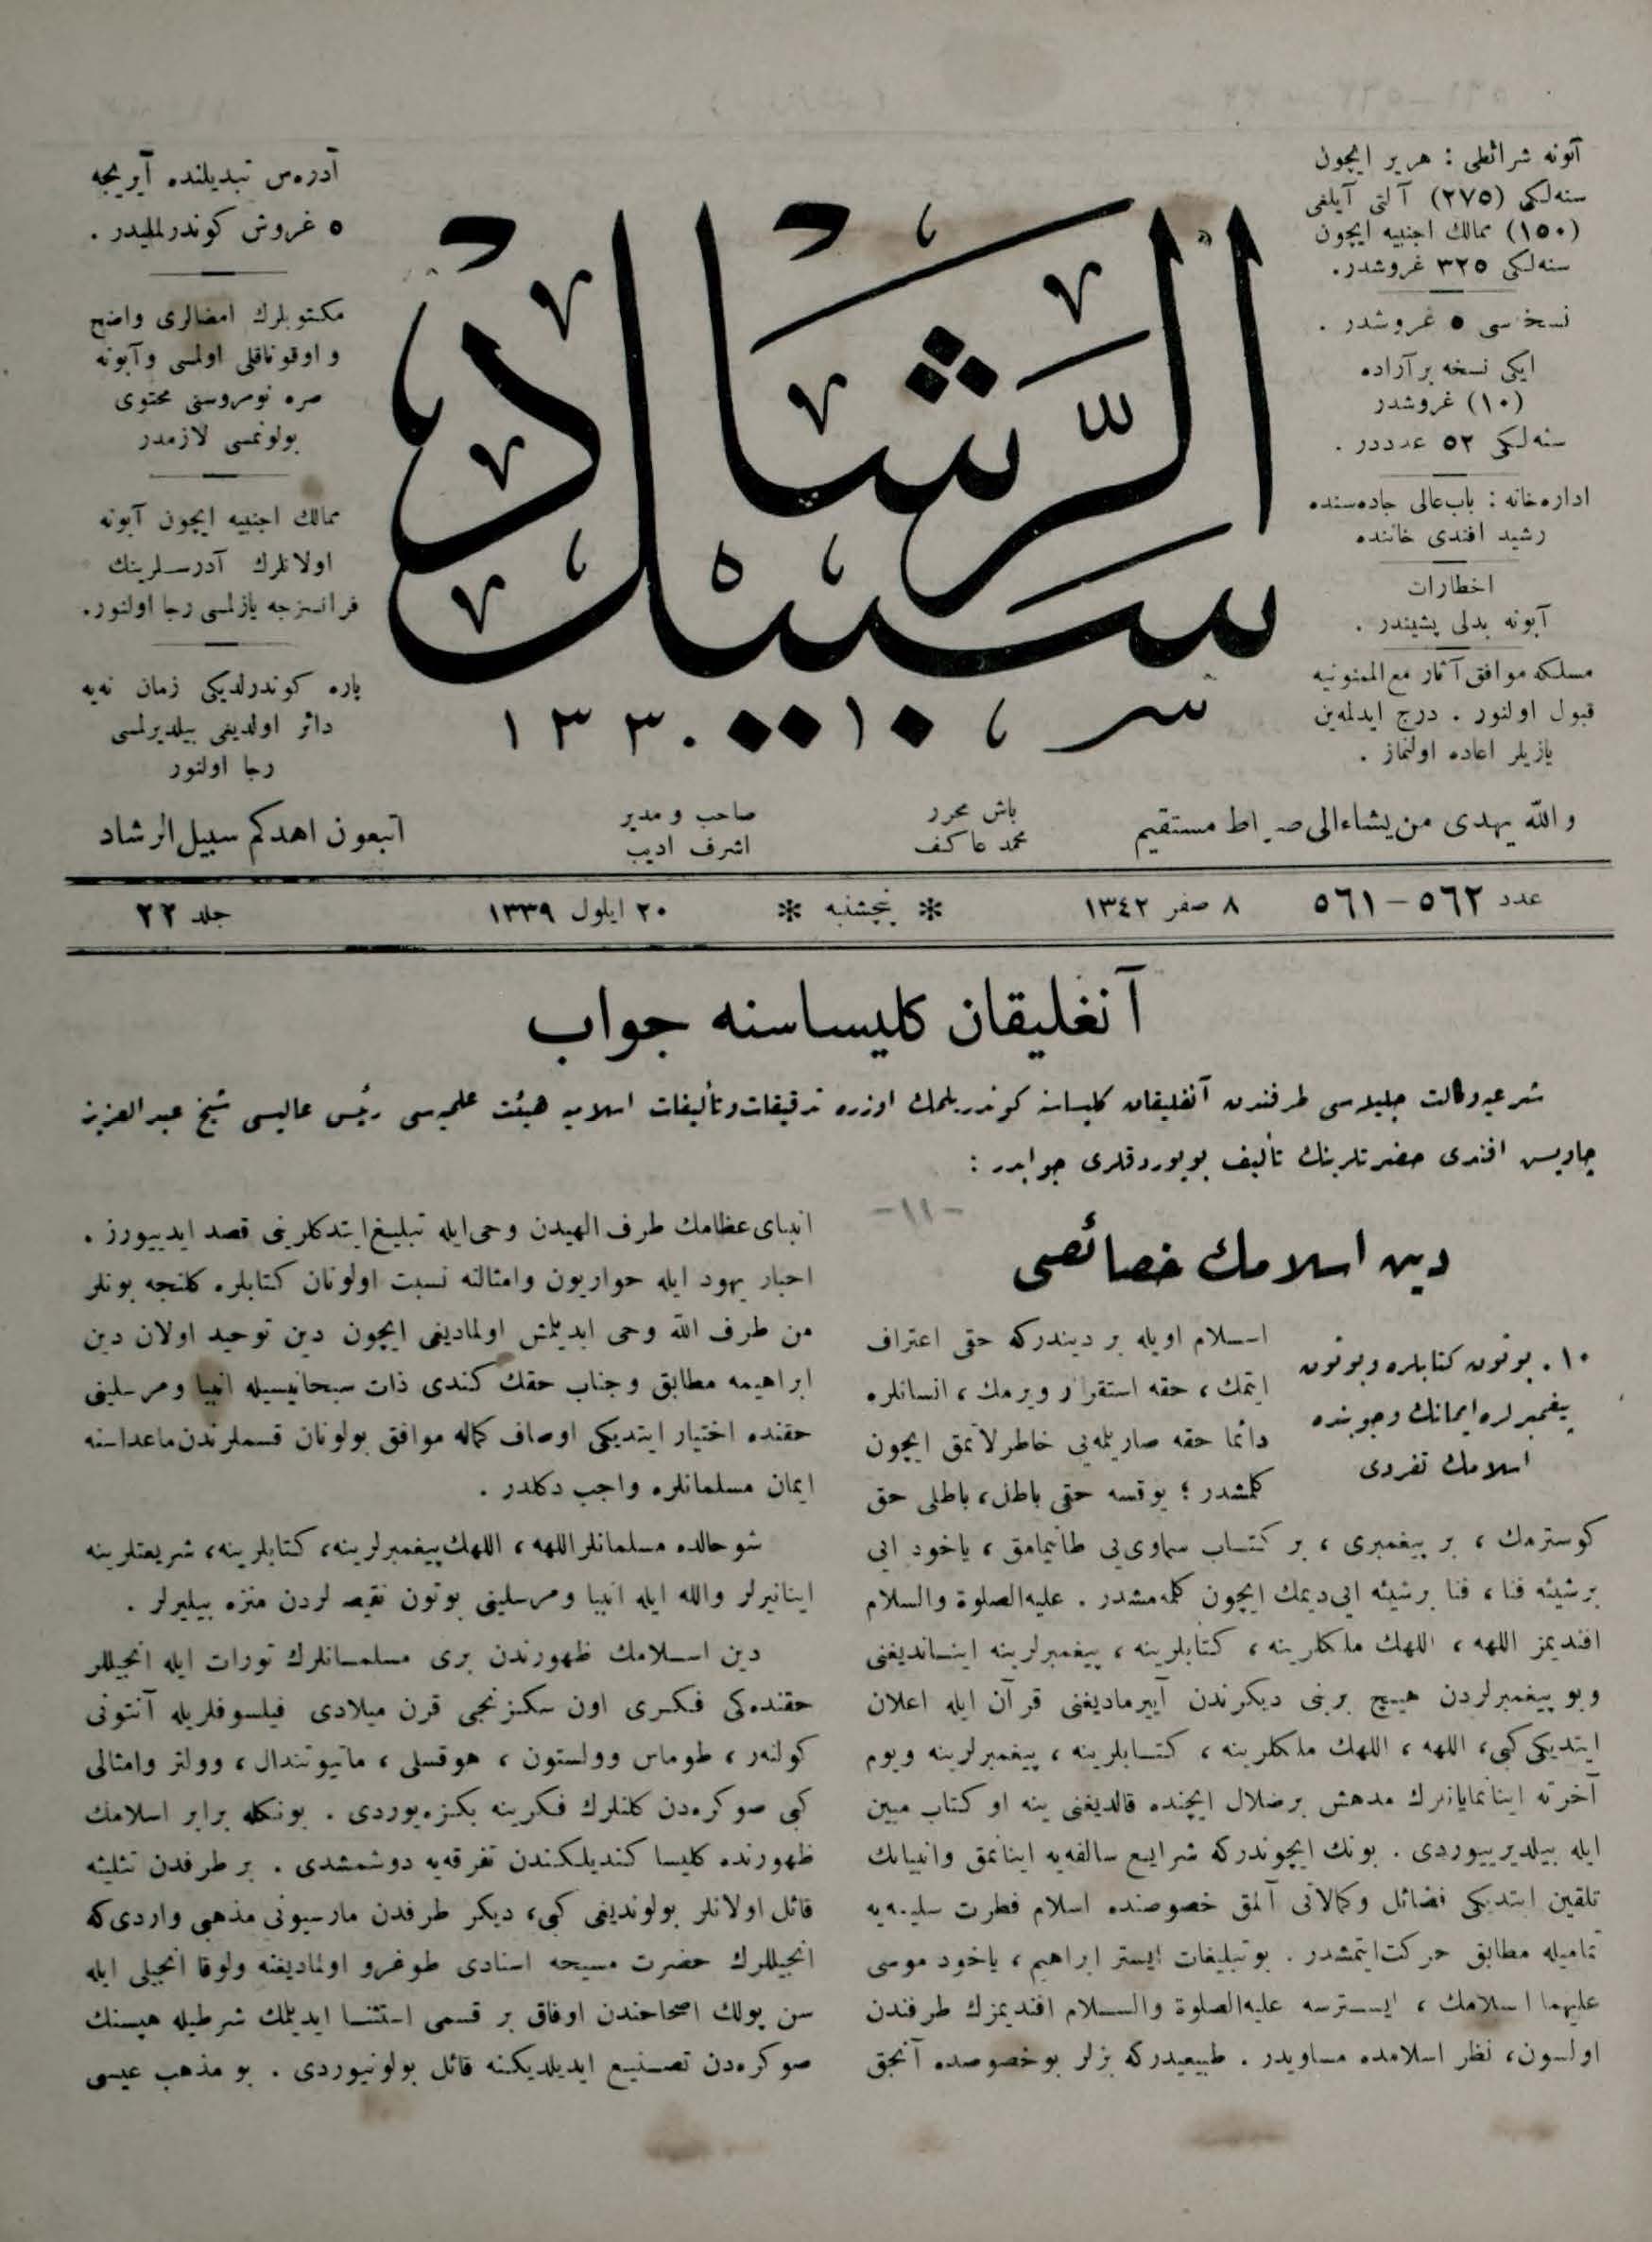 آبونه شرائطی : هر یر ایچون
سنه‌لکی (٢٧٥) آلتی آیلغی
(١٥٠) ممالك اجنبیه ایچون
سنه‌لکی ٣٢٥ غروشدر.
نسخه‌سی ٥ غروشدر .
ایکی نسخه بر آراده
(١٠) غروشدر
سنه‌لکی ٥٢ عدددر .
اداره‌خانه : باب‌عالی جاده‌سنده
رشید افندی خاننده
اخطارات
آبونه بدلی پشیندر .
مسلکه موافق آثار مع‌الممنونیه
قبول اولنور . درج ایدلمه‌ین
یازیلر اعاده اولنماز .
سبیل الرشاد
١٣٣٠
آدره‌س تبدیلنده آیریجه
٥ غروش کوندرلملیدر .
مکتوبلرك امضالری واضح
و اوقوناقلی اولمسی و آبونه
صره نومروسنی محتوی
بولونمسی لازمدر
ممالك اجنبیه ایچون آبونه
اولانلرك آدرسلرینك
فرانسزجه یازلمسی رجا اولنور.
پاره کوندرلدیکی زمان نه‌یه
دائر اولدیغی بیلدیرلمسی
رجا اولنور
والله یهدی من یشاء الی صراط مستقیم
باش محرر
محمد عاکف
صاحب و مدیر
اشرف ادیب
اتبعون اهدکم سبیل الرشاد
عدد ٥٦٢ – ٥٦١
٨ صفر ١٣٤٢
* پنجشنبه *
٢٠ ایلول ١٣٣٩
جلد ٢٢
آنغلیقان کلیساسنه جواب
شرعیه وکالت جلیله‌سی طرفندن آنغلیقان کلیساسنه کوندریلمك اوزره تدقیقات و تألیفات اسلامیه هیئت علمیه‌سی رئیس عالیسی شیخ عبدالعزیز
چاویس افندی حضرتلرینك تألیف بویوردقلری جوابدر :
-١١-
دین اسلامك خصائصی
١٠. بوتون کتابلره و بوتون
پیغمبرلره ایمانك وجوبنده
اسلامك تفردی
اسلام اویله بر دیندرکه حقی اعتراف
ایتمك ، حقه استقرار ویرمك ، انسانلره
دائما حقه صاریلمه‌یی خاطرلاتمق ایچون
کلمشدر ؛ یوقسه حقی باطل، باطلی حق
کوسترمك ، بر پیغمبری ، بر کتاب سماوی‌یی طانیمامق ، یاخود ایی
برشیئه فنا ، فنا برشیئه ایی دیمك ایچون کلمه‌مشدر . علیه‌الصلوة والسلام
افندیمز اللهه ، اللهك ملکلرینه ، کتابلرینه ، پیغمبرلرینه اینـاندیغنی
و بو پیغمبرلردن هیچ برینی دیکرندن آییرمادیغنی قرآن ایله اعلان
ایتدیکی کبی، اللهه ، اللهك ملکلرینه ، کتـابلرینه ، پیغمبرلرینه و یوم
آخرته اینانمایانلرك مدهش برضلال ایچنده قالدیغنی ینه او کتاب مبین
ایله بیلدیرییوردی . بونك ایچوندرکه شرایع سالفه‌یه اینانمق و انبیانك
تلقین ایتدیکی فضائل و کمالاتی آلمق خصوصنده اسلام فطرت سلیمه‌یه
تمامیله مطابق حرکت‌ایتمشدر . بو تبلیغات ایستر ابراهیم ، یاخود موسی
علیهما السلامك ، ایسـترسه علیه‌الصلوة والسـلام افندیمزك طرفندن
اولسون، نظر اسلامده مساویدر . طبیعیدرکه بزلر بو خصوصده آنجق
انبیای عظامك طرف الهیدن وحی‌ایله تبلیغ‌ایتدکلرینی قصد ایدییورز .
احبار یهود ایله حواریون و امثالنه نسبت اولونان کتابلره کلنجه بونلر
من طرف الله وحی ایدیلمش اولمادیغی ایچون دین توحید اولان دین
ابراهیمه مطابق و جناب حقك کندی ذات سبحانیسیله انبیا و مرسلینی
حقنده اختیار ایتدیکی اوصاف کماله موافق بولونان قسملرندن‌ماعداسنه
ایمان مسلمانلره واجب دکلدر .
شو حالده مسلمانلر اللهه ، اللهك پیغمبرلرینه، کتابلرینه، شریعتلرینه
اینانیرلر و الله ایله انبیا و مرسلینی بوتون نقیصه‌لردن منزه بیلیرلر .
دین اسـلامك ظهورندن بری مسلمـانلرك تورات ایله انجیللر
حقنده‌کی فکری اون سکزنجی قرن میلادی فیلسوفلریله آنتونی
کولنه‌ز ، طوماس وولستون ، هوقسلی ، ماتیوتندال ، وولتر وامثالی
کبی صوکره‌دن کلنلرك فکرینه بکزه‌یوردی . بونکله برابر اسلامك
ظهورنده کلیسا کندیلکندن تفرقه‌یه دوشمشدی . بر طرفدن تثلیثه
قائل اولانلر بولوندیغی کبی، دیکر طرفدن مارسیونی مذهبی واردی‌که
انجیللرك حضرت مسیحه اسنادی طوغرو اولمادیغنه ولوقا انجیلی ایله
سن پولك اصحاحندن اوفاق بر قسمی استثنـا ایدیلمك شرطیله هپسنك
صوکره‌دن تصـنیع ایدیلدیکنه قائل بولونیوردی . بو مذهب عیسی